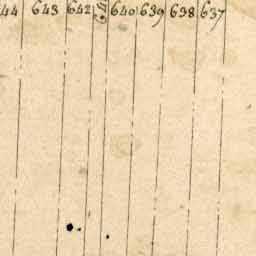 44 643 642 641 640 639 638 637